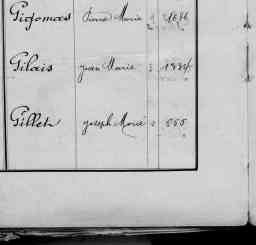 Pigomas Pierre Marie 2 1886
Gilais Jean Marie 3 1884
Gillet Joseph Marie 2 555